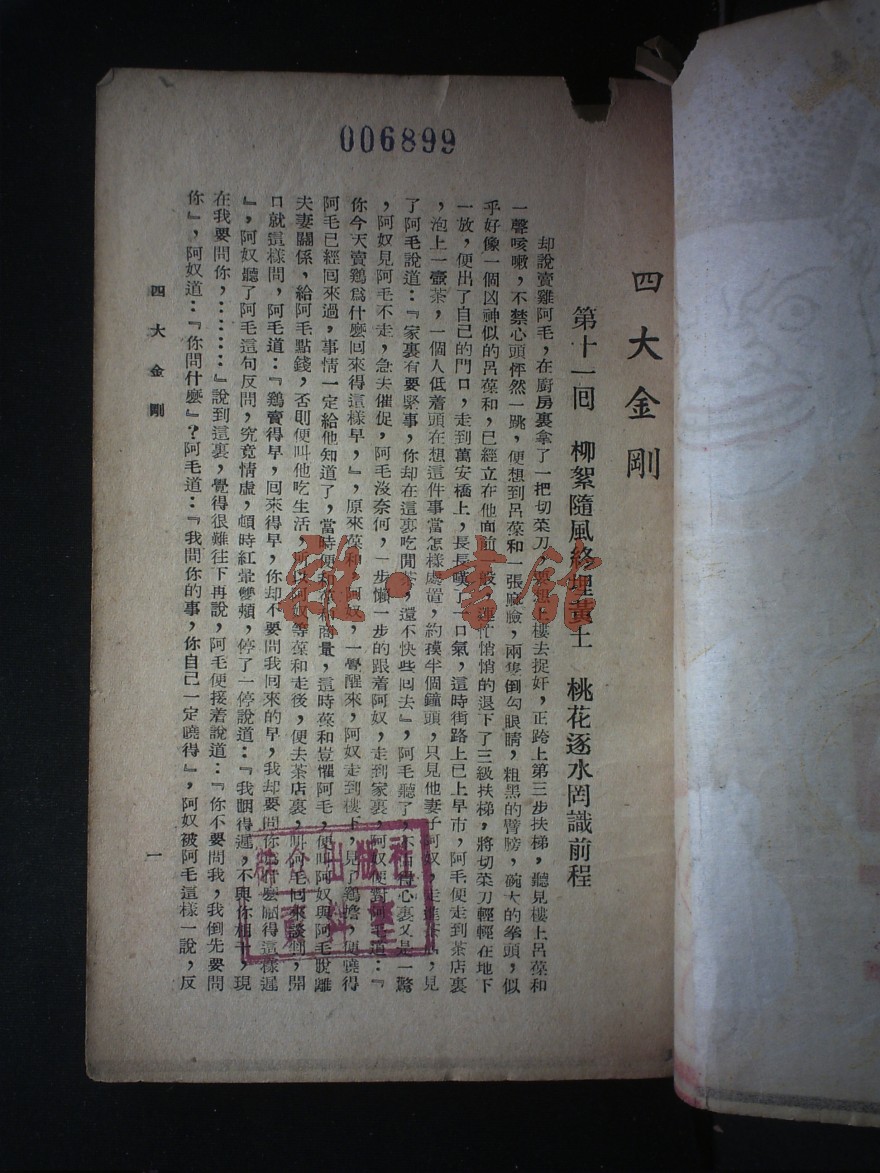 006899
四大金剛
第十一囘　柳絮隨風終埋黃土　桃花逐水罔識前程
却說賣雞阿毛，在廚房裏拿了一把切菜刀，要想上樓去捉奸，正跨上第三步扶梯，聽見樓上呂葆和
一聲咳嗽，不禁心頭怦然一跳，便想到呂葆和一張麻臉，兩隻倒勾眼睛，粗黑的臂膀，碗大的拳頭，似
乎好像一個凶神似的呂葆和，已經立在他面前一般，連忙悄悄的退下了三級扶梯，將切菜刀輕輕在地下
一放，便出了自己的門口，走到萬安橋上，長長嘆了一口氣，這時街路上已上早市，阿毛便走到茶店裏
，泡上一壺茶，一個人低着頭在想這件事當怎樣處置，約摸半個鐘頭，只見他妻子阿奴，走進茶店，見
了阿毛說道：『家裏有要緊事，你却在這裏吃閒茶，還不快些囘去』，阿毛聽了，不由心裏又是一驚
，阿奴見阿毛不走，急夫催促，阿毛沒奈何，一步懶一步的跟着阿奴，走到家裏，阿奴便對阿毛道：『
你今天賣鷄爲什麼回來得這樣早，』，原來葆和阿奴，一覺醒來，阿奴走到樓下，見了鷄擔，便曉得
阿毛已經囘來過，事情一定給他知道了，當時便和葆和商量，這時葆和豈懼阿毛，便叫阿奴與阿毛脫離
夫妻關係，給阿毛點錢，否則便叫他吃生活，所以阿奴等葆和走後，便去茶店裏，叫阿毛回來談判，開
口就這樣問，阿毛道：『鷄賣得早，囘來得早，你却不要問我囘來的早，我却要問你爲什麼睏得這樣遲
』，阿奴聽了阿毛這句反問，究竟情虛，頓時紅暈雙頰，停了一停說道：『我睏得遲，不與你相干，現
在我要問你，………』說到這裏，覺得很難往下再說，阿毛便接着說道：『你不要問我，我倒先要問
你』，阿奴道：『你問什麼』？阿毛道：『我問你的事，你自己一定曉得』，阿奴被阿毛這樣一說，反
四大金剛
一
雜·書館
出版社